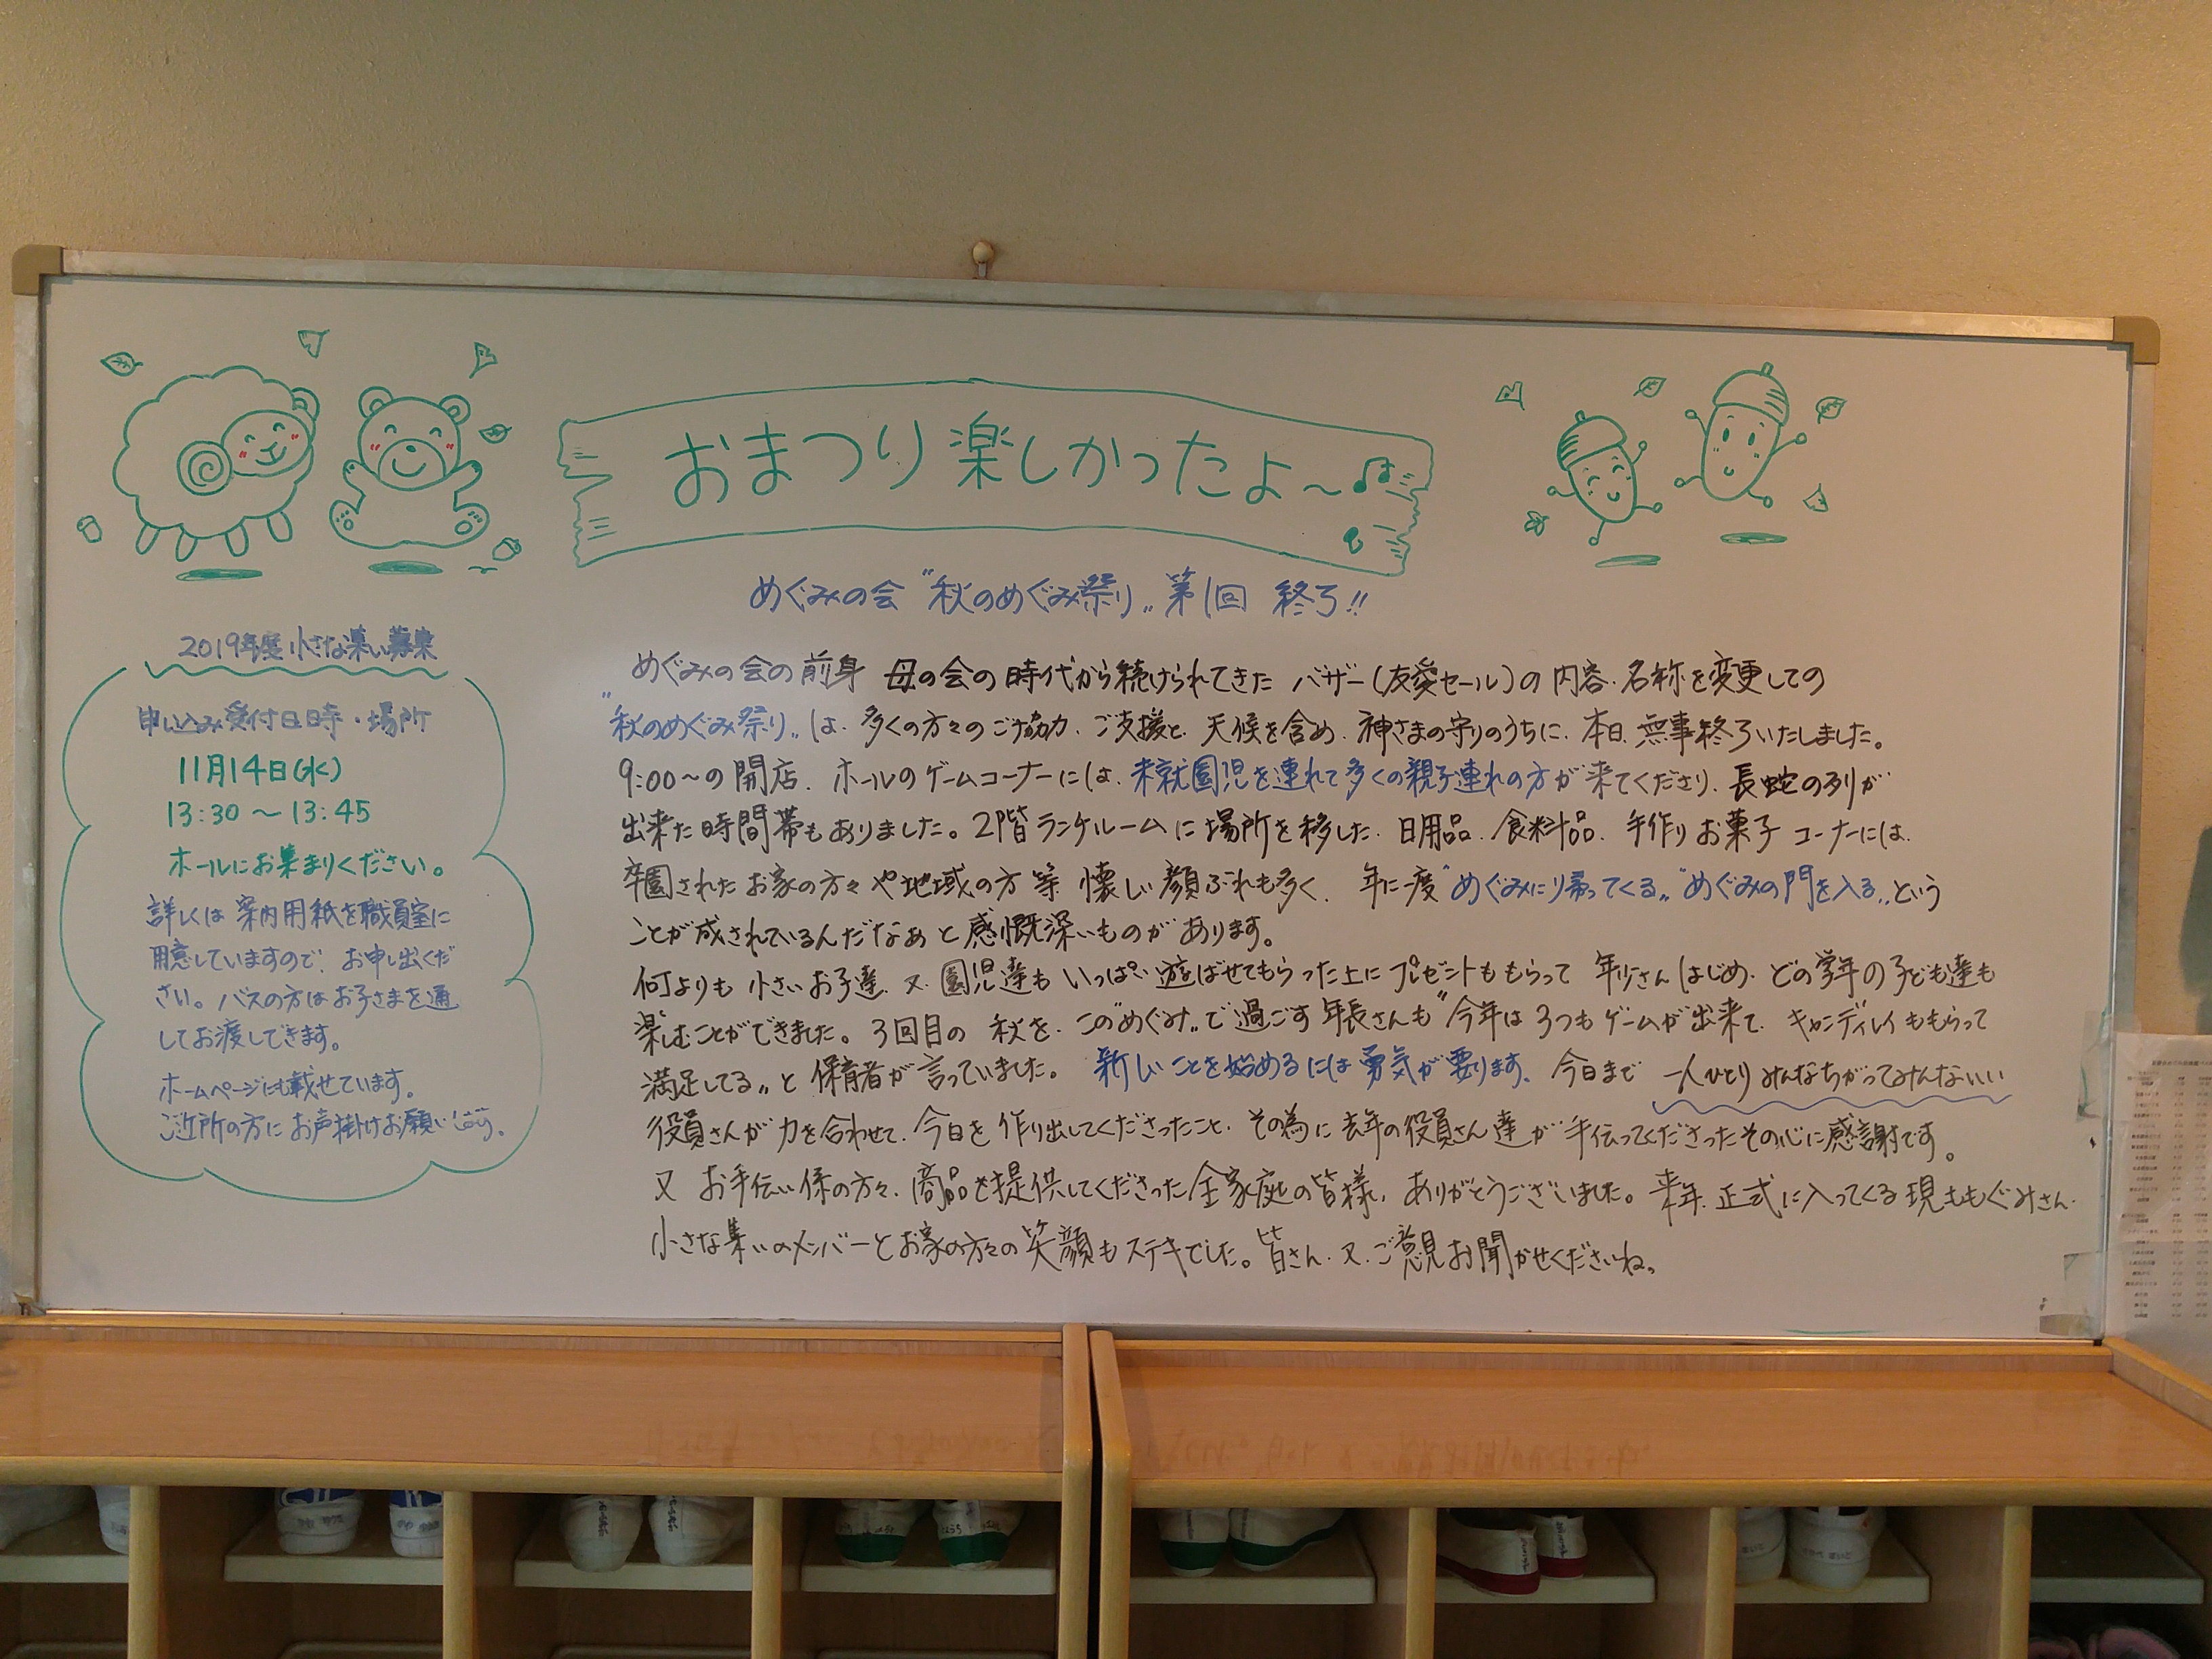 おまつり楽しかったよ〜♫
めぐみの会 "秋のめぐみ祭り" 第1回 終了!!
2019年度 小さな集い募集
申し込み受付日時・場所
11月14日(水)
13:30 〜 13:45
ホールにお集まりください。
詳しくは 案内用紙を職員室に
用意していますので、お申し出くだ
さい。バスの方はお子さまを通
してお渡しできます。
ホームページにも載せています。
ご近所の方に お声掛けお願いします。
めぐみの会の前身 母の会の時代から続けられてきた バザー(友愛セール)の 内容・名称を変更しての
"秋のめぐみ祭り"は、多くの方々のご協力、ご支援と、天候を含め、神さまの守りのうちに、本日、無事終了いたしました。
9:00〜の開店、ホールのゲームコーナーには、未就園児を連れて多くの親子連れの方が来てくださり、長蛇の列が
出来た時間帯もありました。2階ランチルームに場所を移した、日用品、食料品、手作りお菓子コーナーには、
卒園されたお家の方々や地域の方等 懐しい顔ぶれも多く、年に一度"めぐみに帰ってくる""めぐみの門を入る"という
ことが成されているんだなぁと感慨深いものがあります。
何よりも 小さいお子達、又、園児達も いっぱい遊ばせてもらった上に プレゼントももらって 年少さんはじめ、どの学年の子ども達も
楽しむことができました。3回目の 秋を、この"めぐみ"で過ごす年長さんも"今年は3つもゲームが出来て、キャンディレイももらって
満足してる"と 保育者が言っていました。新しいことを始めるには勇気が要ります。今日まで 一人ひとり みんなちがってみんないい
役員さんが 力を合わせて、今日を作り出してくださったこと、その為に去年の役員さん達が手伝ってくださったその心に感謝です。
又 お手伝い係の方々、商品を提供してくださった全家庭の皆様、ありがとうございました。来年、正式に入ってくる現ももぐみさん、
小さな集いのメンバーとお家の方々の笑顔もステキでした。皆さん、又、ご意見お聞かせくださいね。